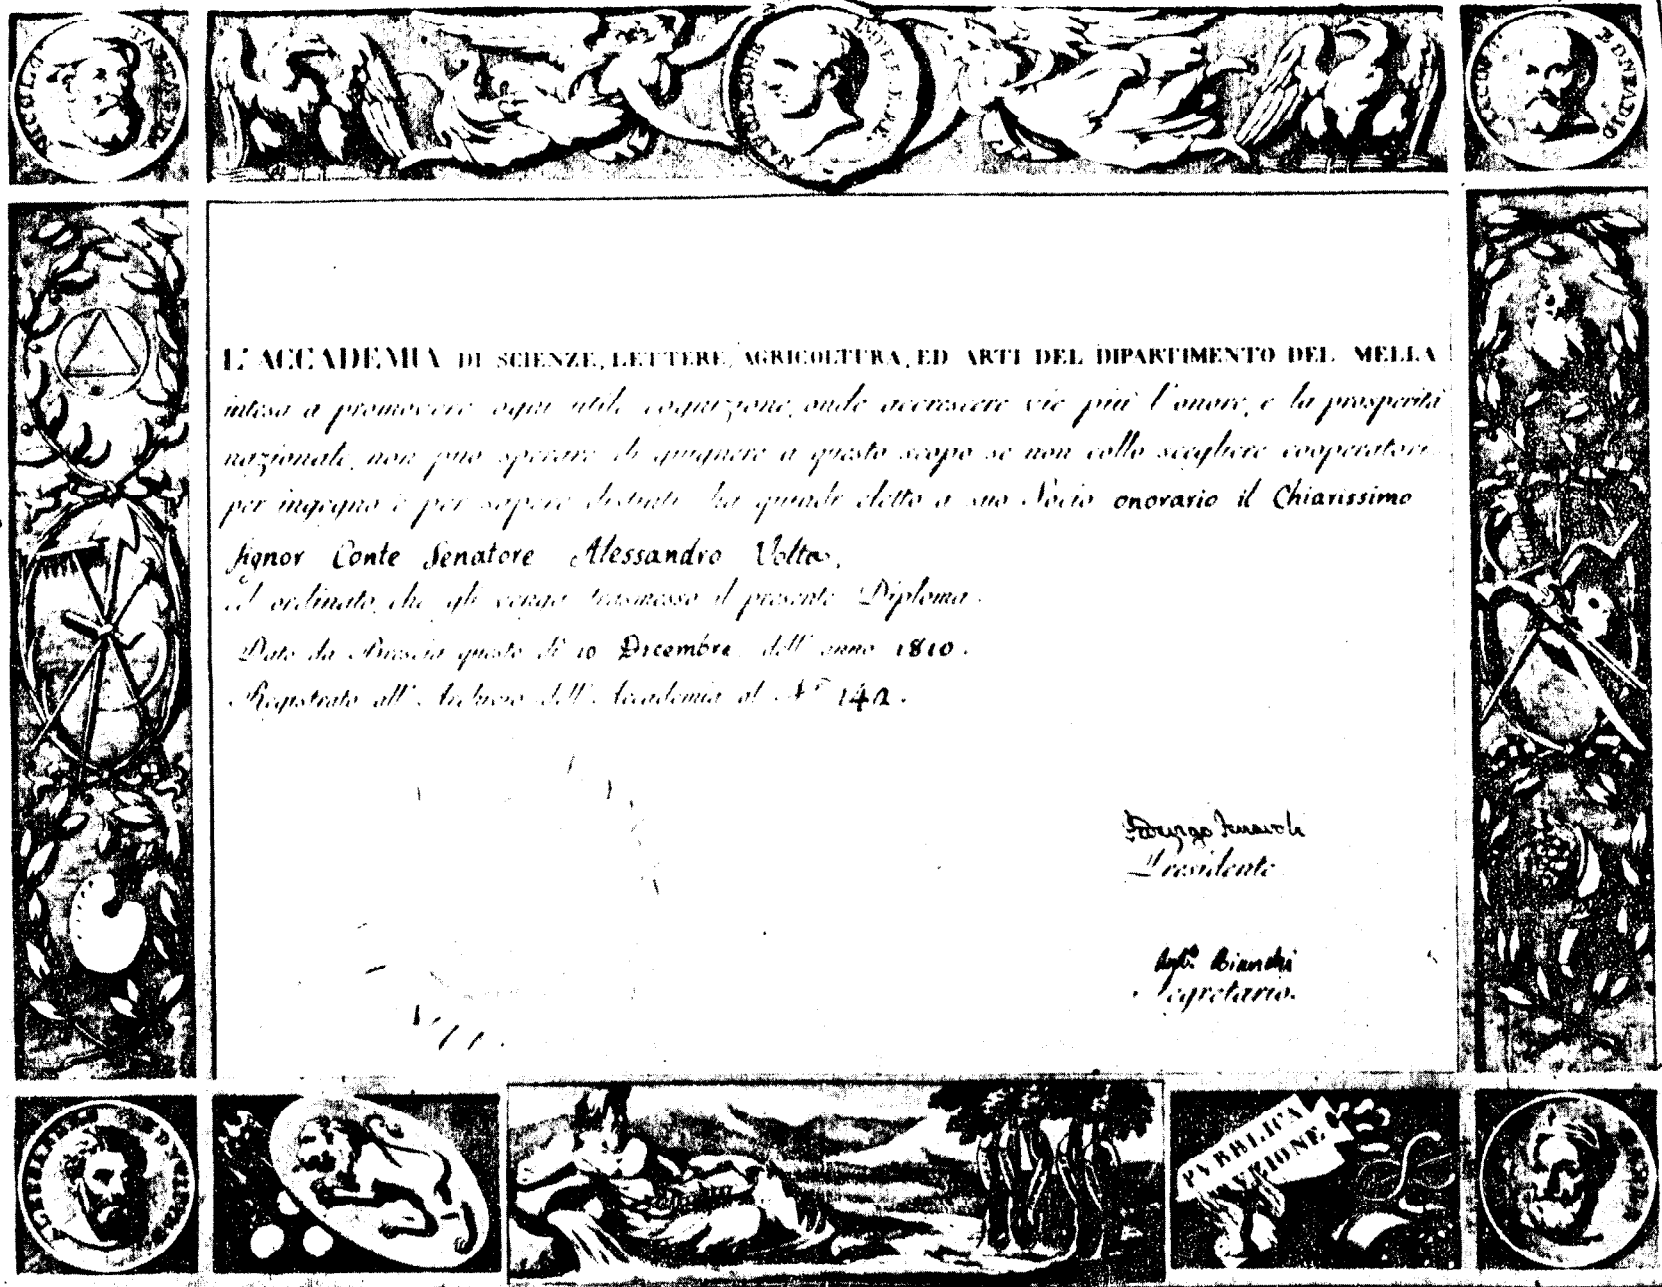 NAPOLEONE
L'ACCADEMIA DI SCIENZE, LETTERE, AGRICOLTURA, ED ARTI DEL DIPARTIMENTO DEL MELLA
intesa a promovere ogni utile cognizione, onde accrescere vie più l'onore, e la prosperità
nazionale, non può sperare di giugnere a questo scopo se non collo scegliere cooperatori
per ingegno e per sapere distinti ha quindi eletto a suo Socio onorario il Chiarissimo
Signor Conte Senatore Alessandro Volta,
ed ordinato, che gli venga trasmesso il presente Diploma.
Dato da Brescia questo dì 10 Dicembre dell'anno 1810.
Registrato all'Archivio dell'Accademia al N.º 142.
Presidente
Bianchi
Segretario.
PUBBLICA